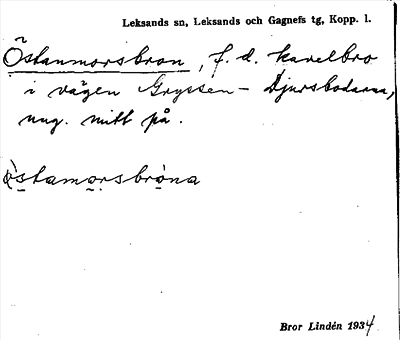 Leksands sn, Leksands och Gagnefs tg, Kopp. l.
Östanmorsbron, f. d. kavelbro
i vägen Gryssen - Djursbodarna,
ung. mitt på.
ò̀stamo̠rsbrò̠na
Bror Lindén 1934